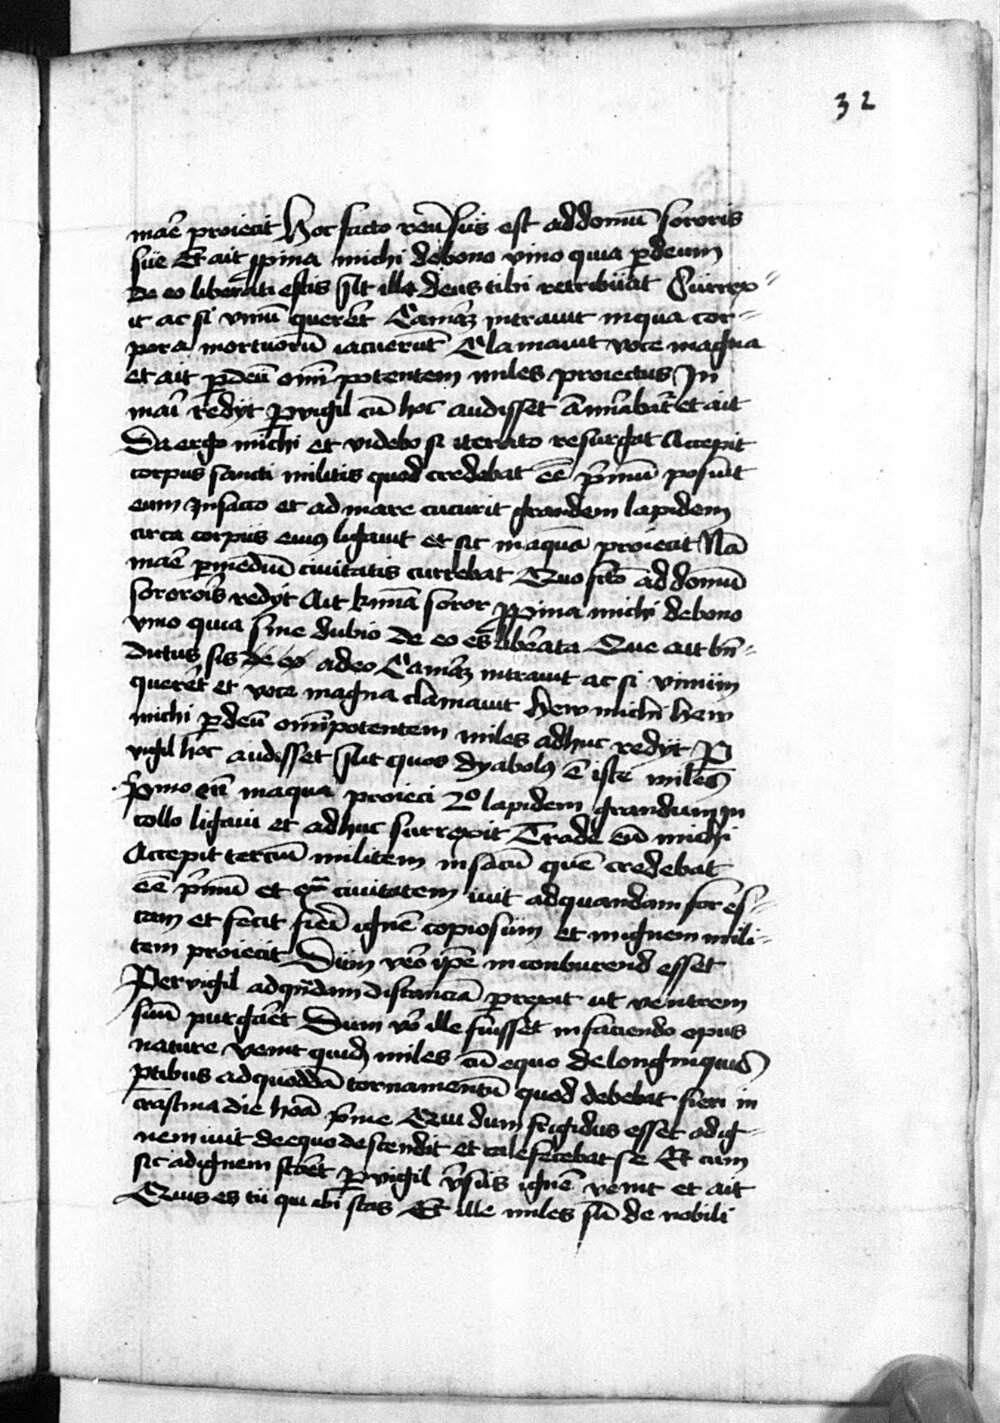 32
mar̄e proiecit Hoc facto reūsus est ad domū sororis
sue Et ait ꝓpina michi de bono vino quia ꝑ deum
de eo liberati estis Alt ille deus tibi retribuat Surrex=
it ac si vinū querēt Cam̄ā intrauit in qua cor=
pora mortuorū iacuerūt Clamauit voce magna
et ait ꝑ deū om̄ipotentem miles proiectus In
mari redyt ꝑvigil cū hoc audisset āmirabat̄ et ait
Da ergo michi et videbo si iterato resurgat Accepit
corpus sancti militis quod credebat ee͞ p̄mū posuit
eum in sacco et ad mare cucurrit grandem lapidem
circa corpus eius ligauit et sic in aquā proiecit Nā
mar̄e ꝑ mediū ciuitatis currebat Quo fc̄o ad domū
sororis redyt Ait Kr̄ma soror ꝓpina michi de bono
vino quia sine dubio de eo es libērata Que ait bn̄=
dictus sis de eo a deo Cam̄ā intrauit ac si vinum
querēt et voce magna clamauit hew michi hew
michi ꝑ deū om̄ipotentem miles adhuc redyt P
vigil hoc audisset Alt quos dyabolꝯ ē iste miles
p̄mo eū in aqua proieci 2º lapidem grandum in
collo ligaui et adhuc surrexit Trade eū michi
Accepit tercium militem in sacū quē credebat
ee͞ p̄mū et extra ciuitatem iuit ad quandam fores=
tam et fecit fieri ignē copiosum et in ignem mili=
tem proiecit Dum vero ip̄e in conburend esset
Pervigil ad qn̄dam distanciā ꝑrexit ut ventrem
suū purgar̄et Dum vo ille fuisset in faciendo opus
nature venit quidā miles cū equo de longinquis
ꝑtibus ad quoddā tornamentū quod debebat fieri in
crastina die hora p̄me Qui dum frigidus esset ad ig=
nem iuit de equo descendit et calefecebat se Et cum
sic ad ignem staret ꝑvigil v̄sus ignē venit et ait
Quis es tu qui ibi stas Et ille miles sū de nobili